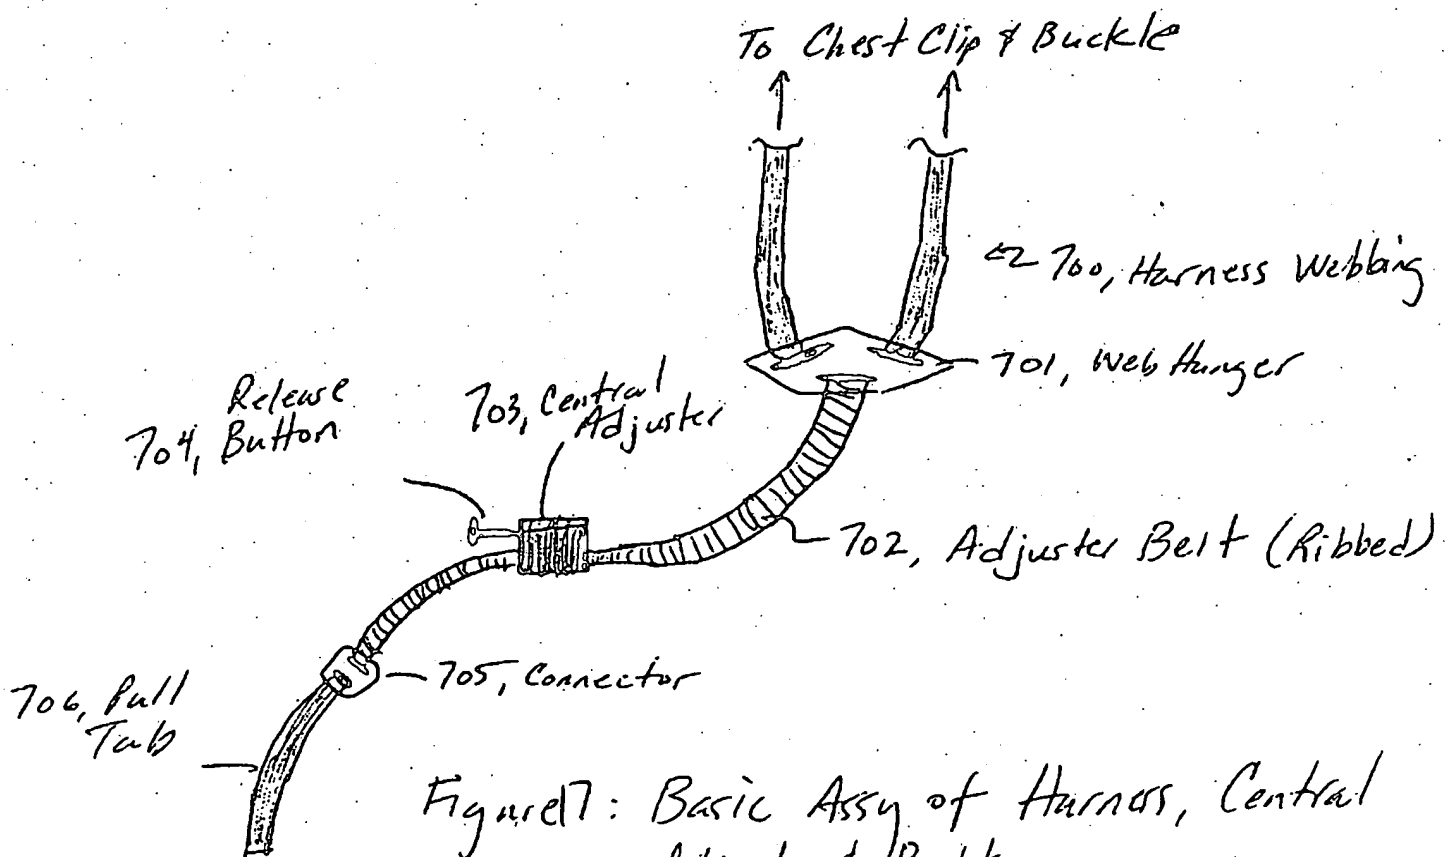 To Chest Clip & Buckle
700, Harness Webbing
701, Web Hanger
Release
704, Button
703, Central
Adjuster
702, Adjuster Belt (Ribbed)
705, Connector
706, Pull
Tab
Figure 7: Basic Assy of Harness, Central